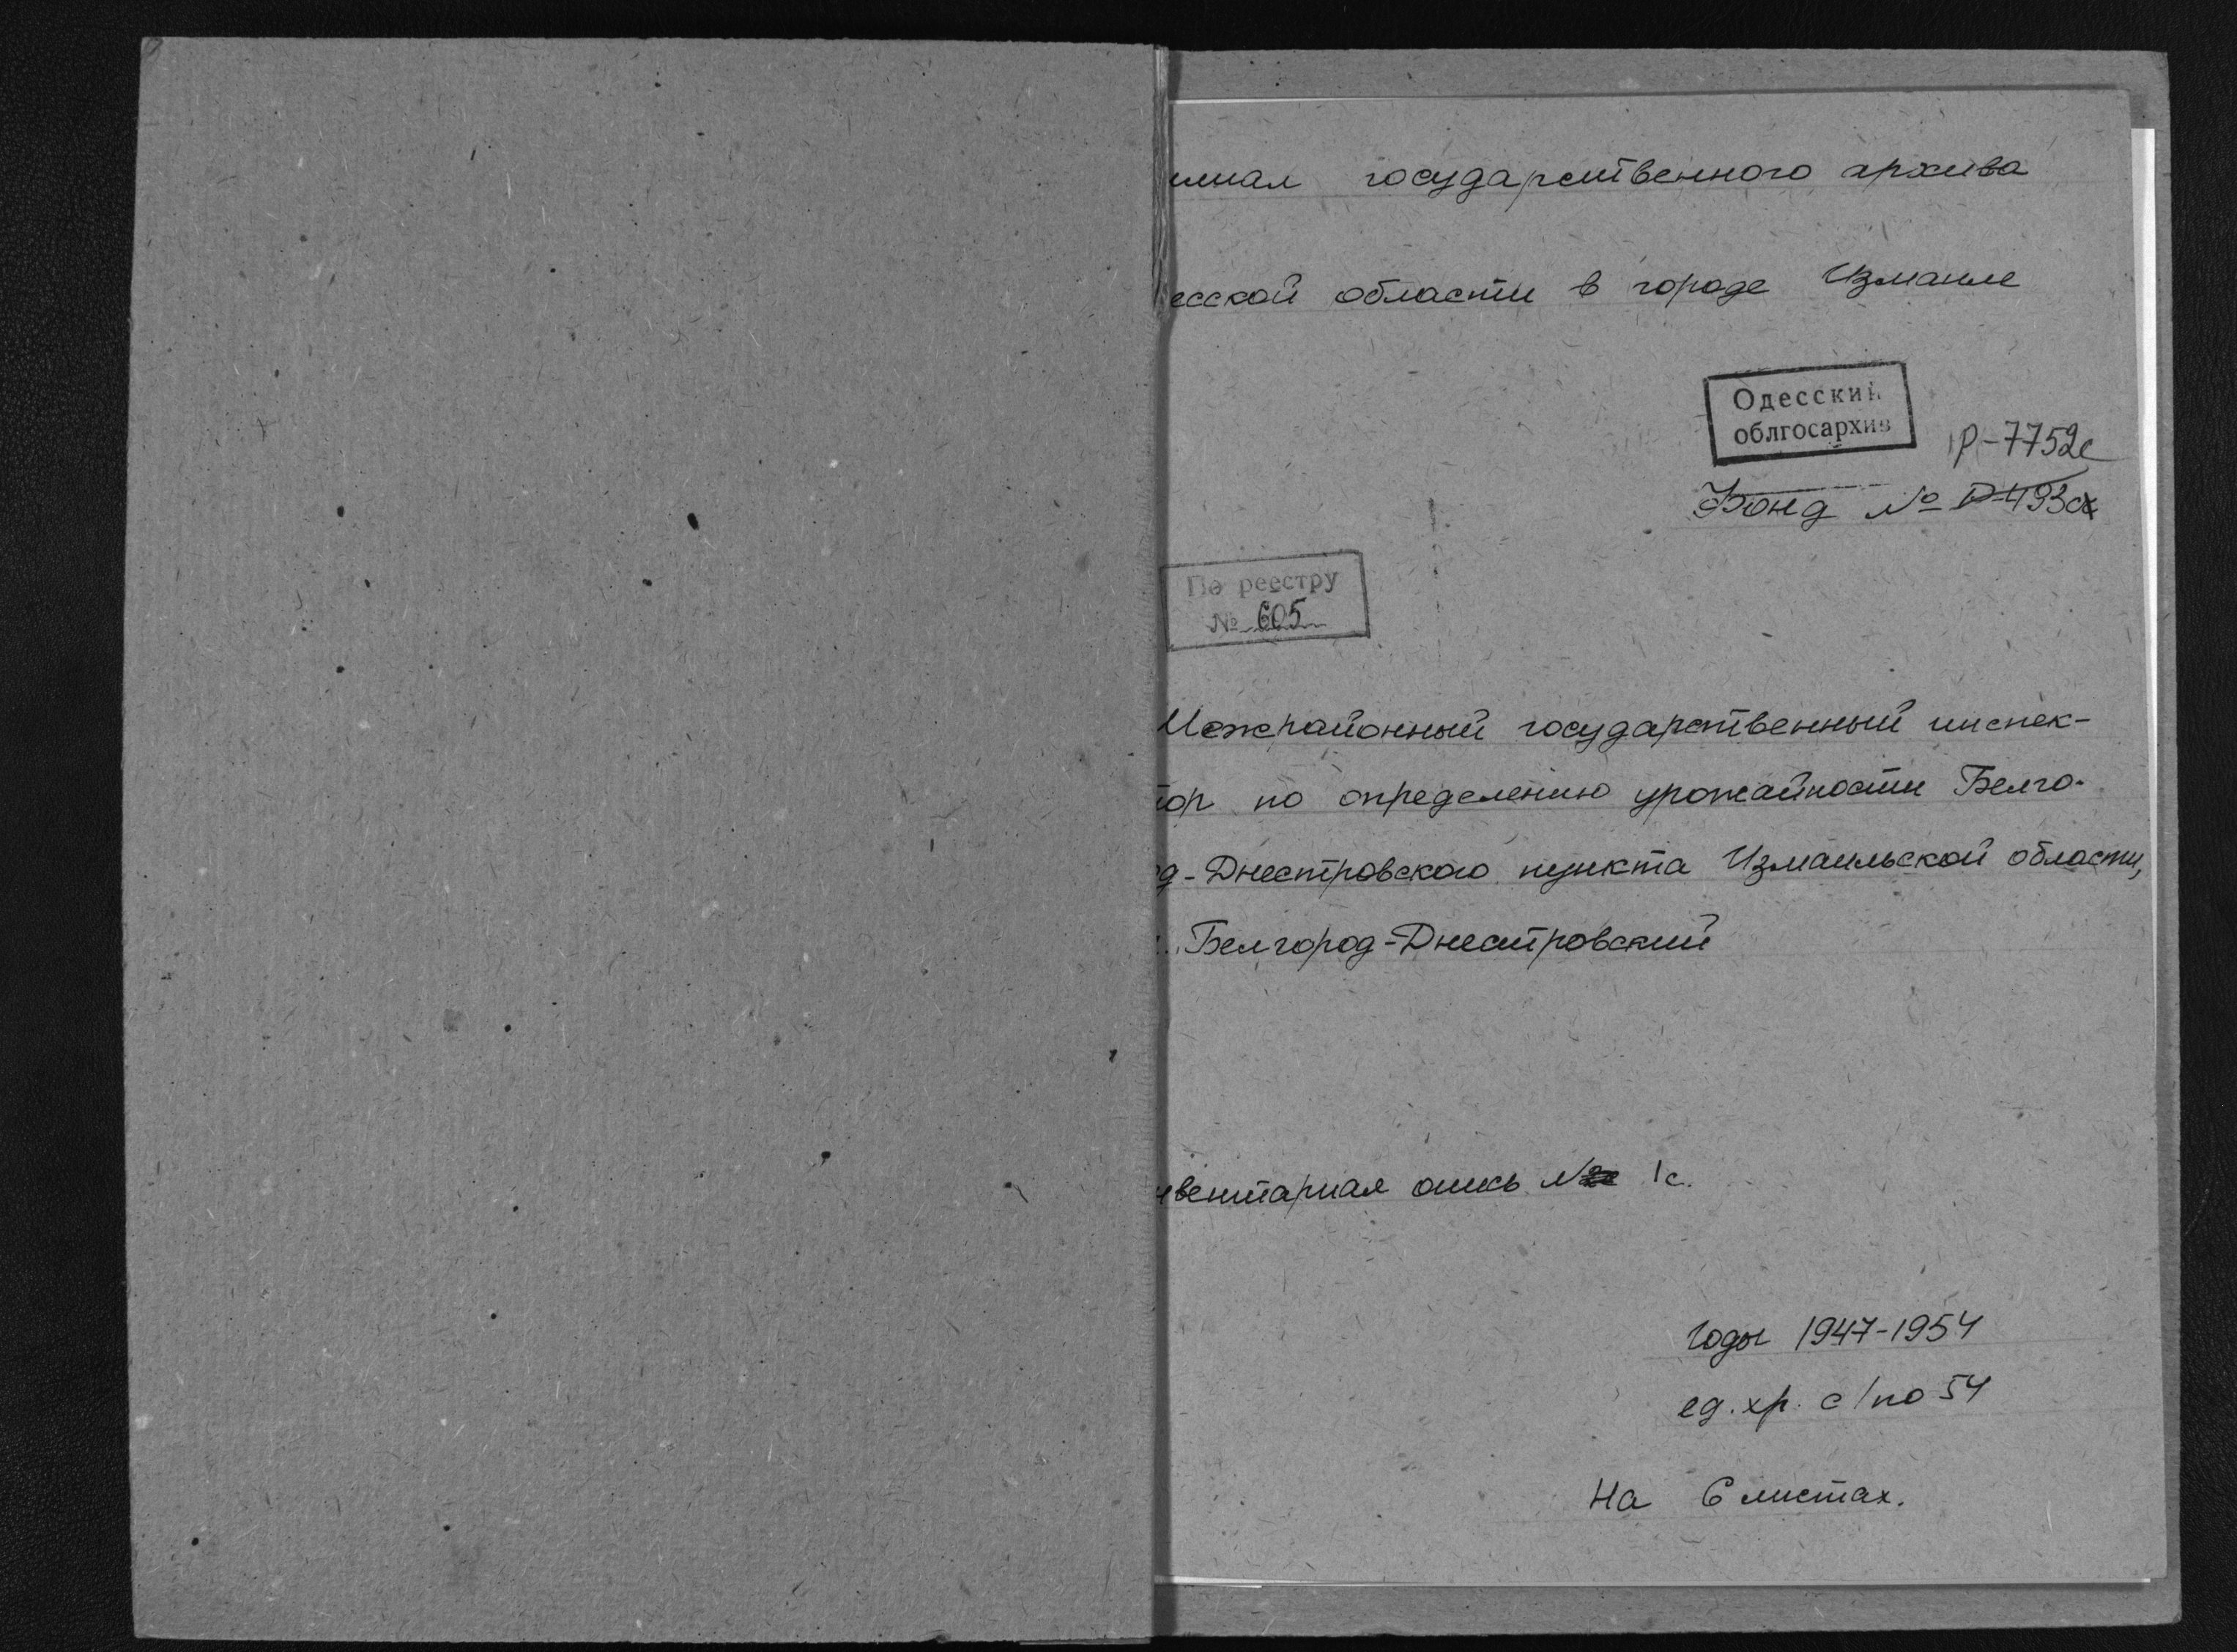 илиал государственного архива
есской области в городе Измаиле
Одесский
облгосархив
Р-7752с
Фонд № Р-493с
По реестру
№ 605
Межрайонный государственный инспек-
тор по определению урожайности Белго-
од-Днестровского пункта Измаильской области,
г. Белгород-Днестровский
нвентарная опись № 1с.
Годы 1947-1954
ед. хр. с 1 по 54
На 6 листах.